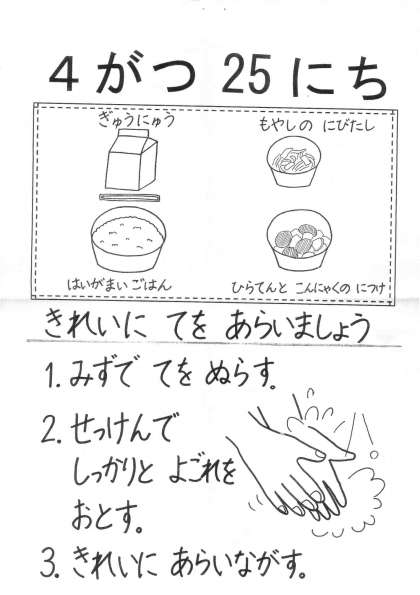 4がつ 25にち
ぎゅうにゅう
もやしの にびたし
はいがまい ごはん
ひらてんと こんにゃくの につけ
きれいに てを あらいましょう
1. みずで てを ぬらす.
2. せっけんで
しっかりと よごれを
おとす。
3. きれいに あらいながす。